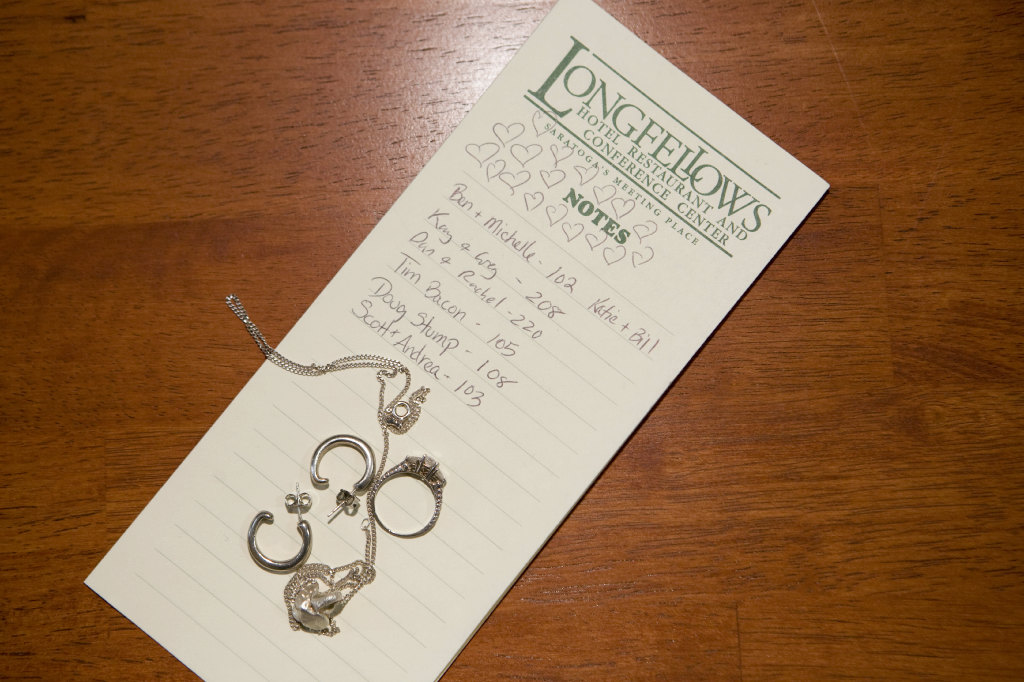 LONGFELLOWS
HOTEL RESTAURANT AND
CONFERENCE CENTER
SARATOGA'S MEETING PLACE
NOTES
Ben + Michelle - 102 Katie + Bill
Kay & Greg - 208
Dan & Rachel - 220
Tim Bacon - 105
Doug Stump - 108
Scott + Andrea - 103